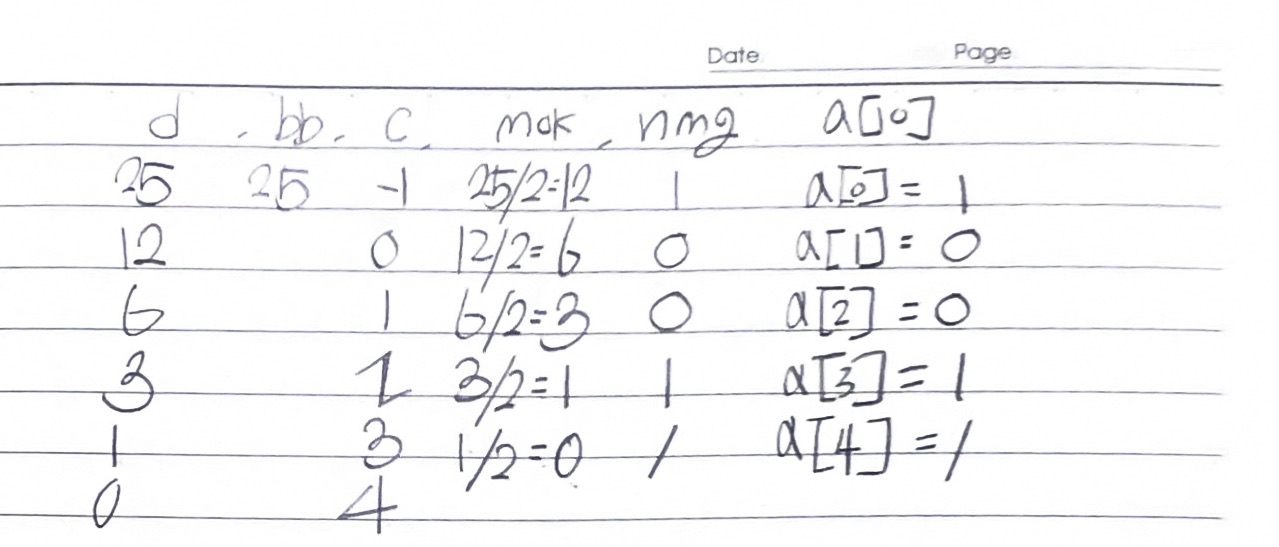 Date Page
d . bb. c. mok , nmg a[10]
25 25 -1 25/2=12 1 a[0] = 1
12 0 12/2=6 0 a[1] = 0
6 1 6/2=3 0 a[2] = 0
3 2 3/2=1 1 a[3] = 1
1 3 1/2=0 1 a[4] = 1
0 4